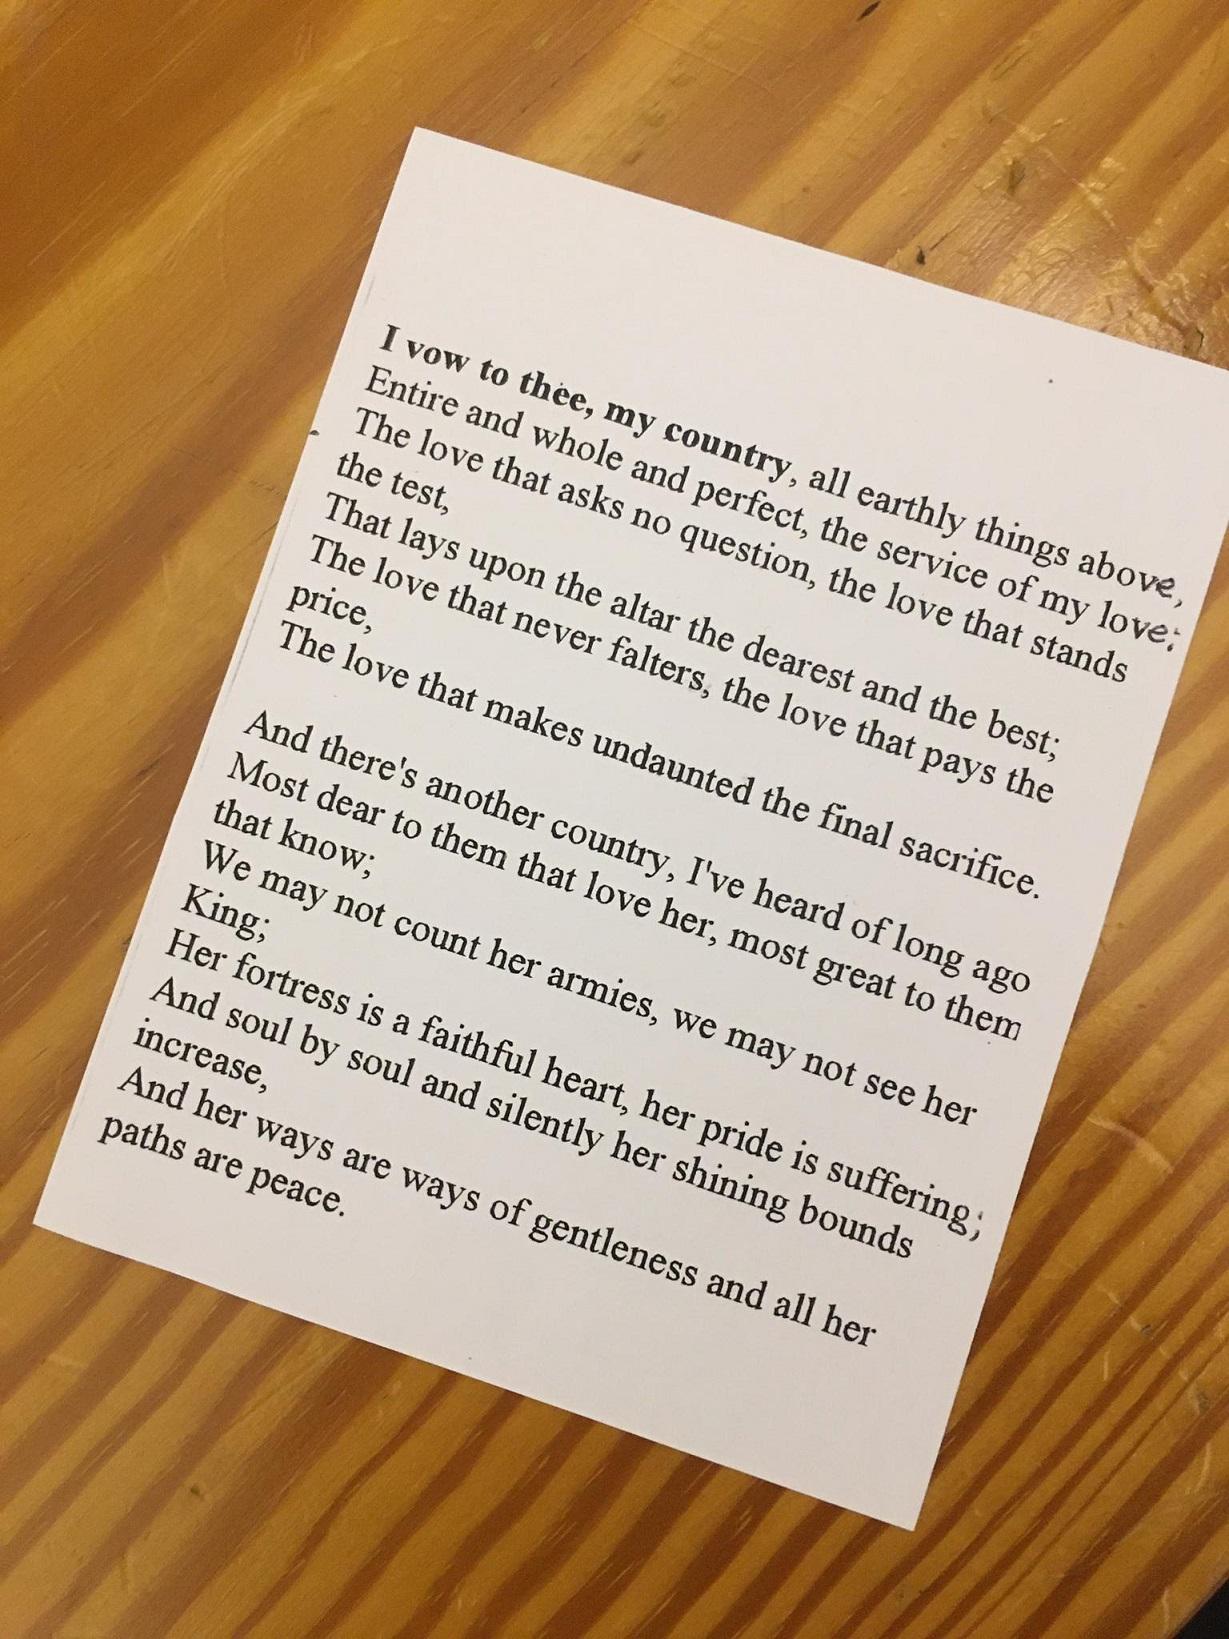 I vow to thee, my country, all earthly things above,
Entire and whole and perfect, the service of my love;
The love that asks no question, the love that stands
the test,
That lays upon the altar the dearest and the best;
The love that never falters, the love that pays the
price,
The love that makes undaunted the final sacrifice.
And there's another country, I've heard of long ago
Most dear to them that love her, most great to them
that know;
We may not count her armies, we may not see her
King;
Her fortress is a faithful heart, her pride is suffering;
And soul by soul and silently her shining bounds
increase,
And her ways are ways of gentleness and all her
paths are peace.